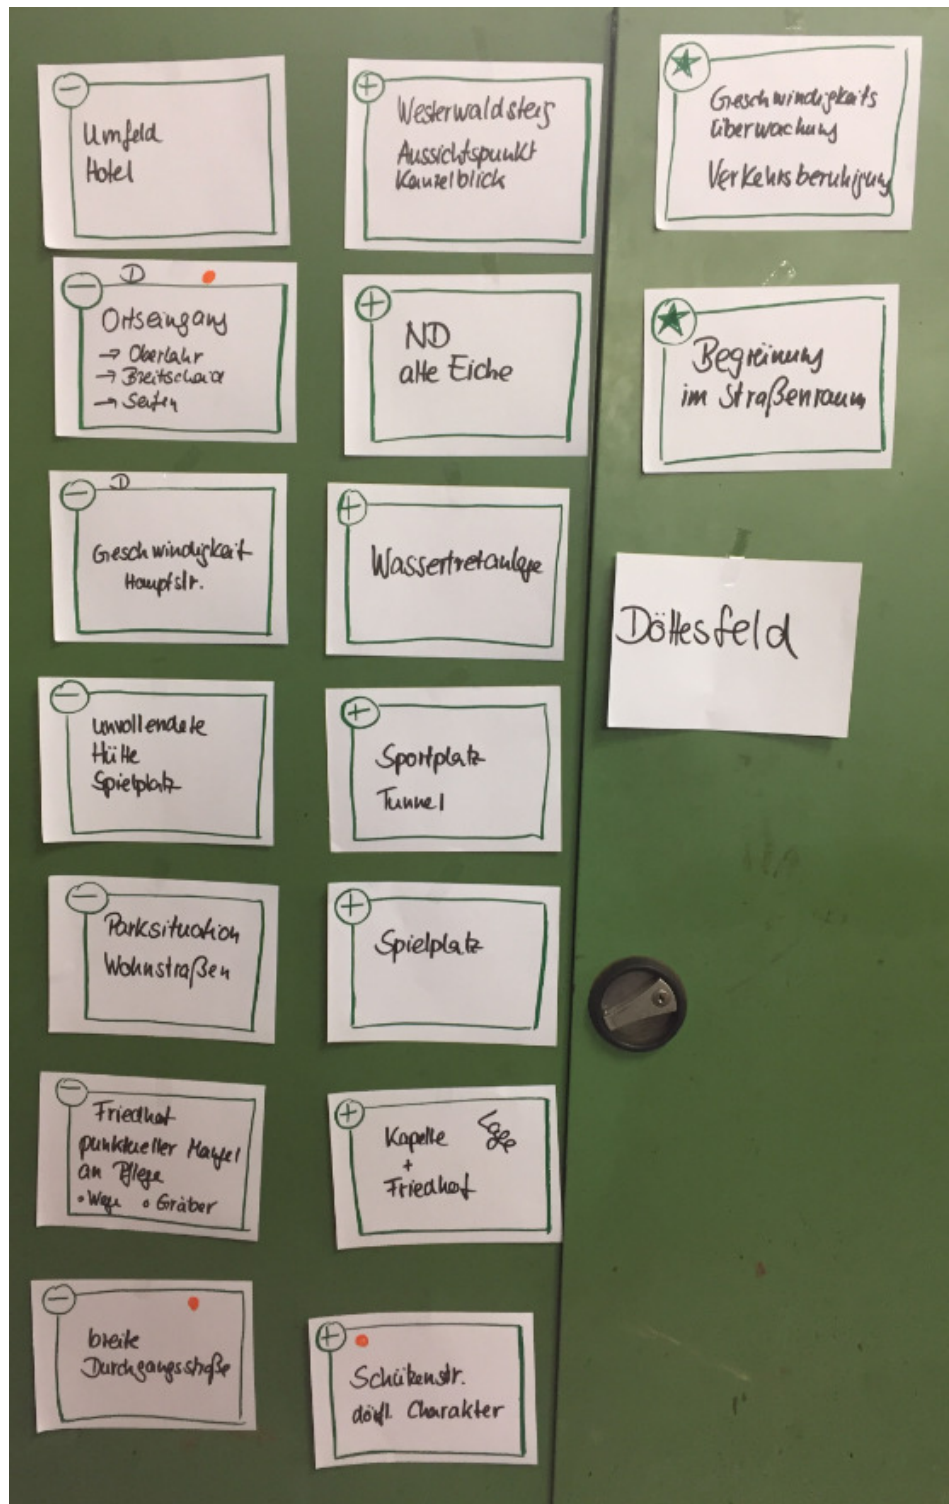 Umfeld
Hotel
D
Ortseingang
→ Oberlahr
→ Breitscheid
→ Seifen
D
Geschwindigkeit
Hauptstr.
unvollendete
Hütte
Spielplatz
Parksituation
Wohnstraßen
Friedhof
punktueller Mangel
an Pflege
• Wege • Gräber
breite
Durchgangsstraße
Westerwaldsteig
Aussichtspunkt
Kanzelblick
ND
alte Eiche
Wassertretanlage
Sportplatz
Tunnel
Spielplatz
Kapelle Lage
+
Friedhof
Schützenstr.
dörfl. Charakter
Geschwindigkeits
überwachung
Verkehrsberuhigung
Begrünung
im Straßenraum
Döttesfeld